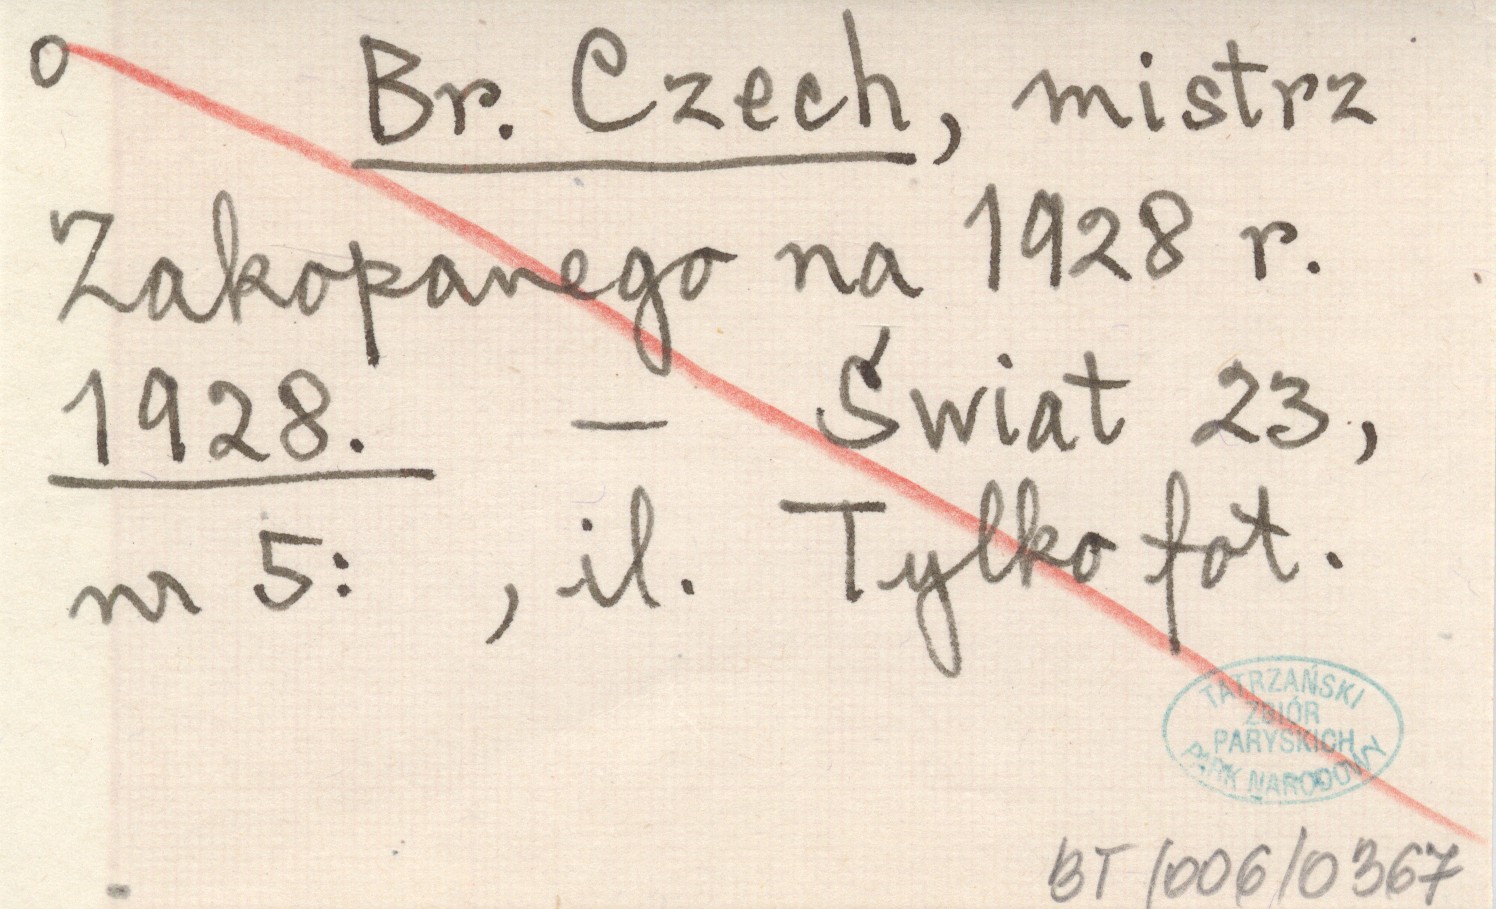 o Br. Czech, mistrz
Zakopanego na 1928 r.
1928. — Świat 23,
nr 5: , il. Tylko fot.
TATRZAŃSKI
ZBIÓR
PARYSKICH
PARK NARODOWY
BT/006/0367